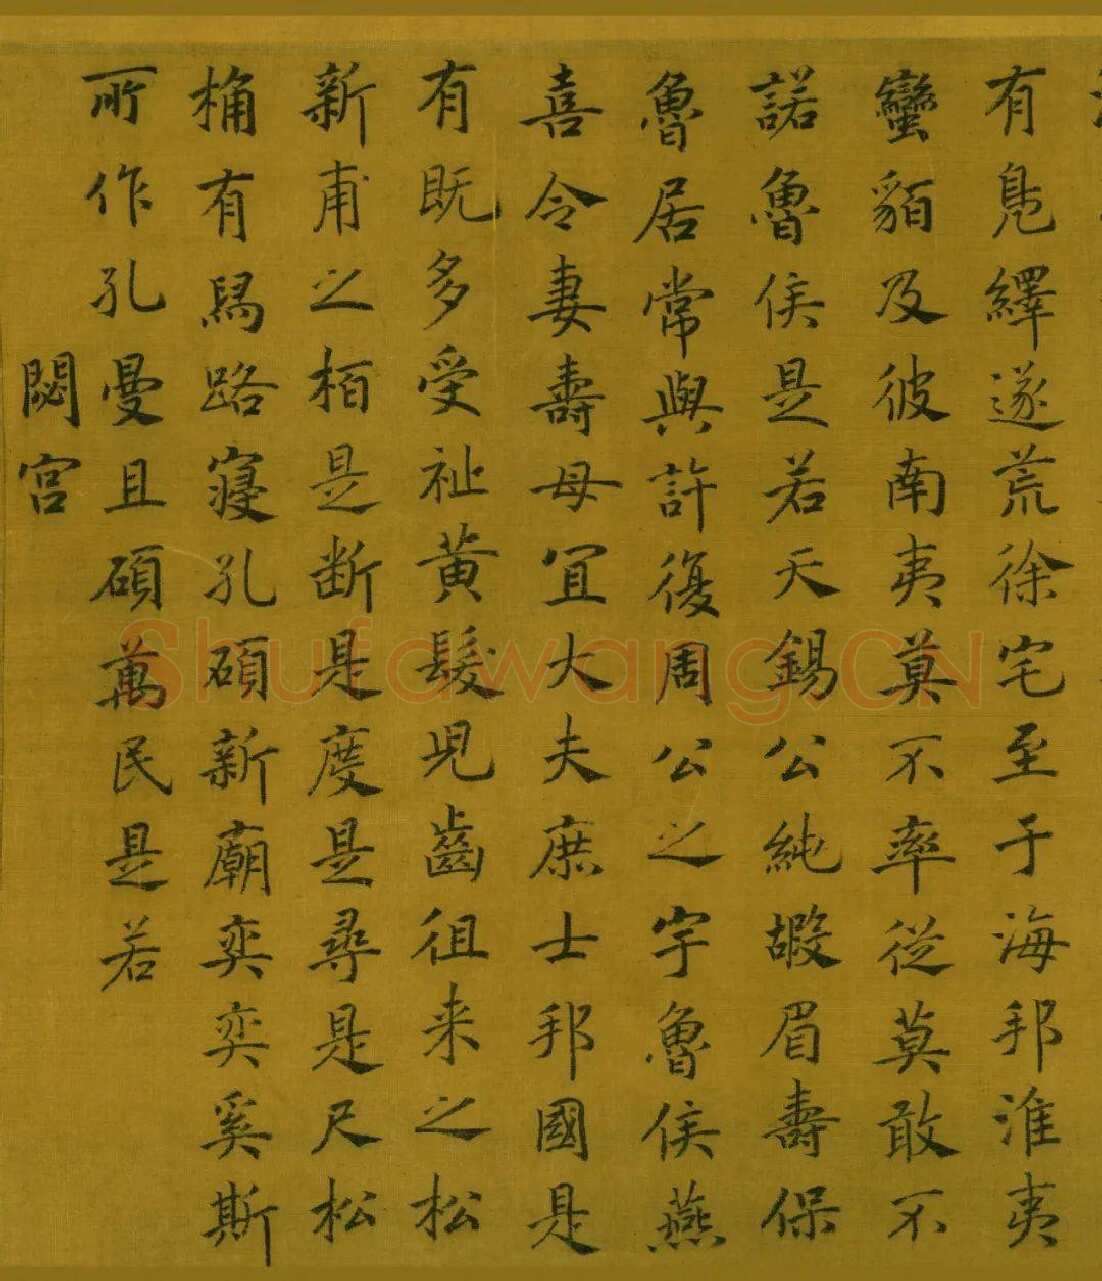 有鳧繹遂荒徐宅至于海邦淮夷
蠻貊及彼南夷莫不率從莫敢不
諾魯侯是若天錫公純嘏眉壽保
魯居常與許復周公之宇魯侯燕
喜令妻壽母宜大夫庶士邦國是
有既多受祉黃髮兒齒徂来之松
新甫之栢是断是度是尋是尺松
桷有舄路寢孔碩新廟奕奕奚斯
所作孔曼且碩萬民是若
閟宮
Shufawang.CN